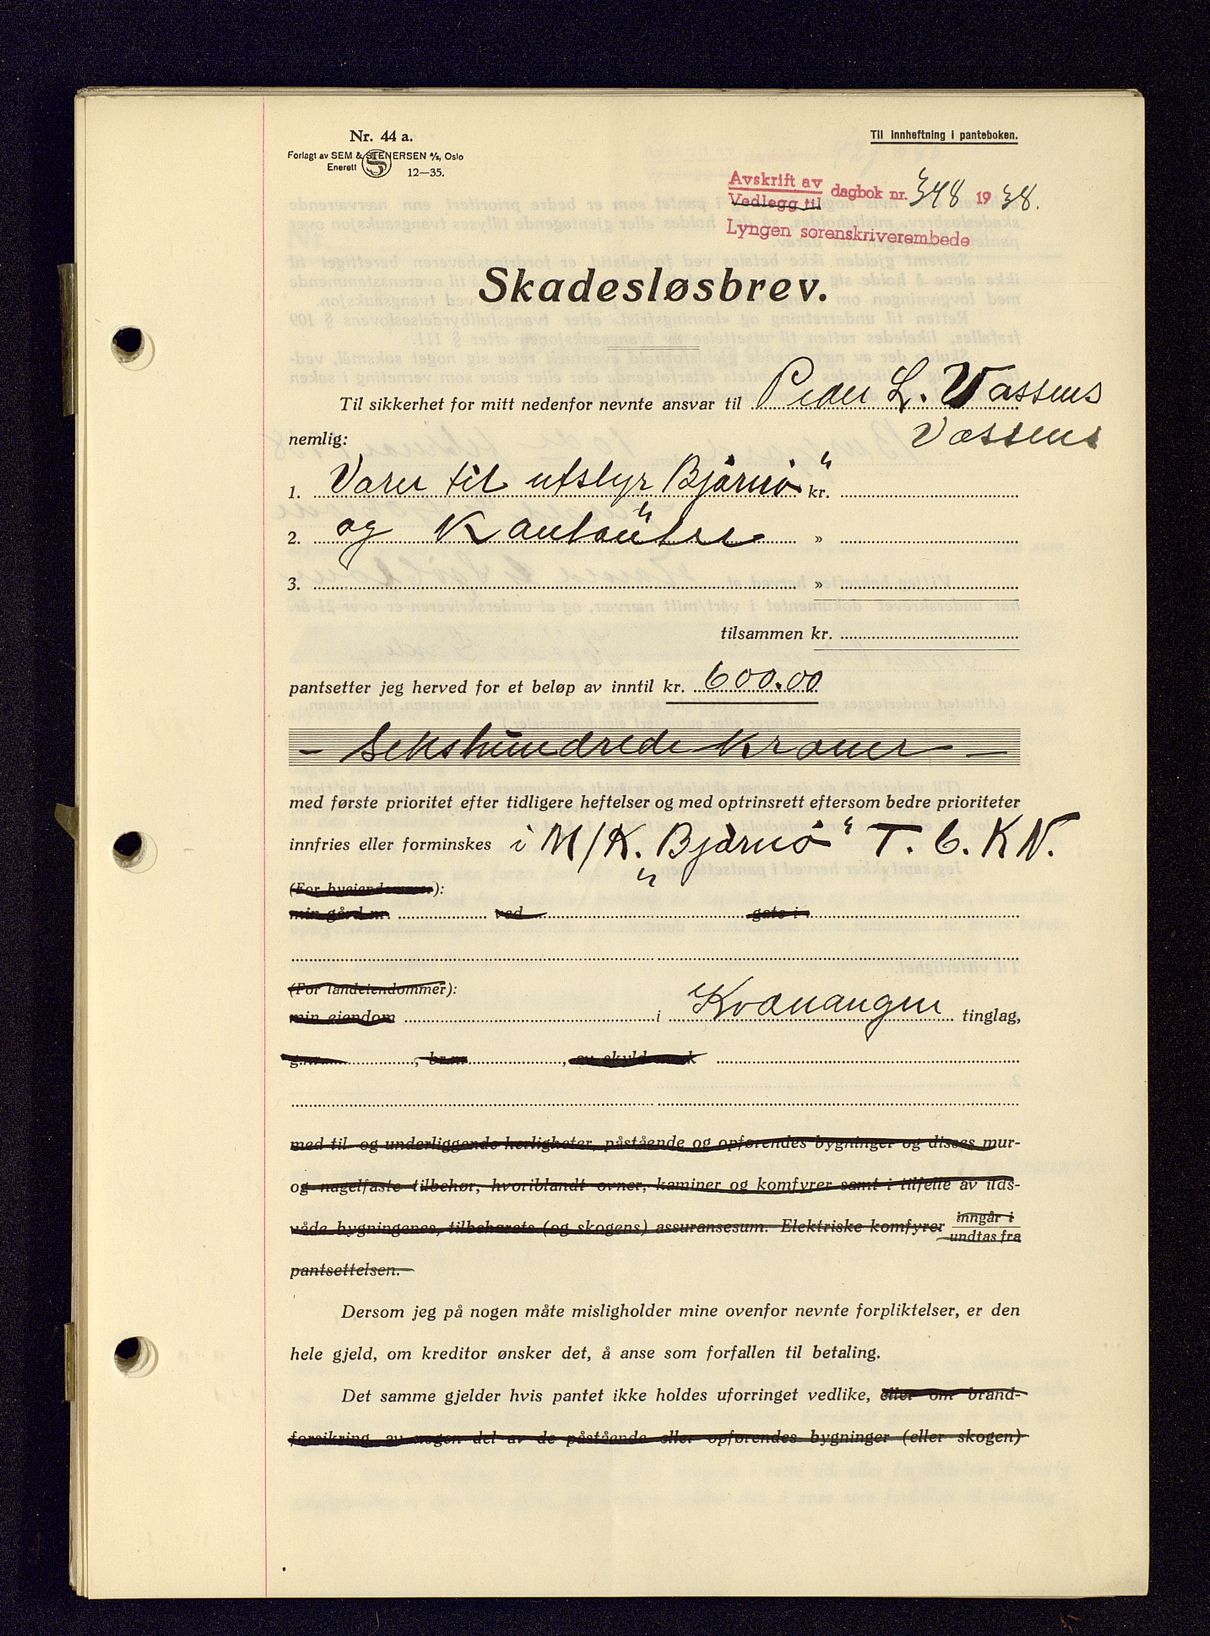 Nr. 44 a.
Forlagt av SEM & STENERSEN A/S, Oslo
Enerett 12—35.
Til innheftning i panteboken.
Avskrift av
Vedlegg til
dagbok nr. 348 1938.
Lyngen sorenskriverembede
Skadesløsbrev.
Til sikkerhet for mitt nedenfor nevnte ansvar til Peder L. Vassens
Vassens
nemlig:
1. Varer til utstyr Bjørnø" kr.
2. og Kantoütre »
3. »
tilsammen kr.
pantsetter jeg herved for et beløp av inntil kr. 600.00
— Sekshundrede kroner —
med første prioritet efter tidligere heftelser og med optrinsrett eftersom bedre prioriteter
innfries eller forminskes i M/K. „Bjørnø" T. 6. K N.
(For byeiendommer):
min gård nr. ved gate i
(For landeiendommer):
min eiendom i Kvænangen tinglag,
g.nr. , br.nr. , av skyld mark
med til- og underliggende herligheter, påstående og opførendes bygninger og disses mur-
og nagelfaste tilbehør, hvoriblandt ovner, kaminer og komfyrer samt i tilfelle av ilds-
våde bygningenes, tilbehørets (og skogens) assuransesum. Elektriske komfyrer inngår i
undtas fra
pantsettelsen.
Dersom jeg på nogen måte misligholder mine ovenfor nevnte forpliktelser, er den
hele gjeld, om kreditor ønsker det, å anse som forfallen til betaling.
Det samme gjelder hvis pantet ikke holdes uforringet vedlike, eller om brand-
forsikring av nogen del av de påstående eller opførendes bygninger (eller skogen)